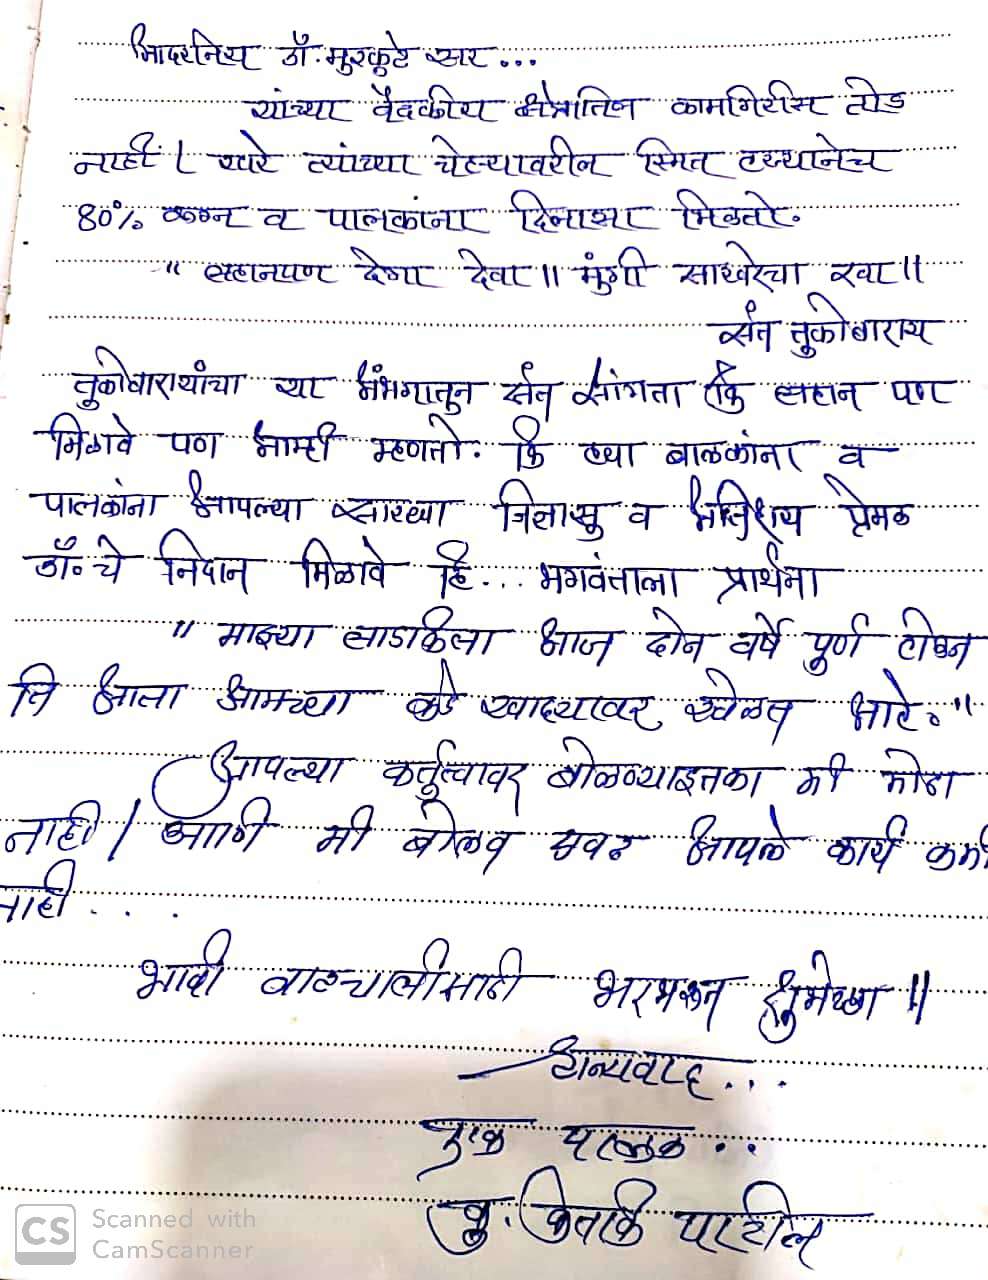 आदरनिय डॉ. मुरकुटे सर...
यांच्या वैदकीय क्षेत्रातिल कामगिरीस तोड
नाही। खरे त्यांच्या चेहऱ्यावरील स्मित हस्यानेच
80% रुग्न व पालकांना दिलासा मिळतो.
" लहानपण देगा देवा॥ मुंगी साखरेचा रवा॥
संत तुकोबाराय
तुकोबारायांचा या अंभगातुन संत सांगता कि लहान पण
मिळावे पण आम्ही म्हणतो. कि ह्या बालकांना व
पालकांना आपल्या सारख्या जिज्ञासु व अतिशय प्रेमळ
डॉ. चे निदान मिळावे हि... भगवंताला प्रार्थना
" माझ्या लाडकिला आज दोन वर्षे पुर्ण होऊन
ति आता आमच्या कडे खाद्यावर खेळत आहे."
आपल्या कर्तुत्वावर बोळण्याइतका मी मोठा
नाही। आणि मी बोलव एवढ आपले कार्य कमी
नाही...
भावी वाटचालीसाठी भरभरून शुभेच्छा ॥
धन्यवाद...
एक पालक..
कु. पाटील
CS Scanned with
CamScanner